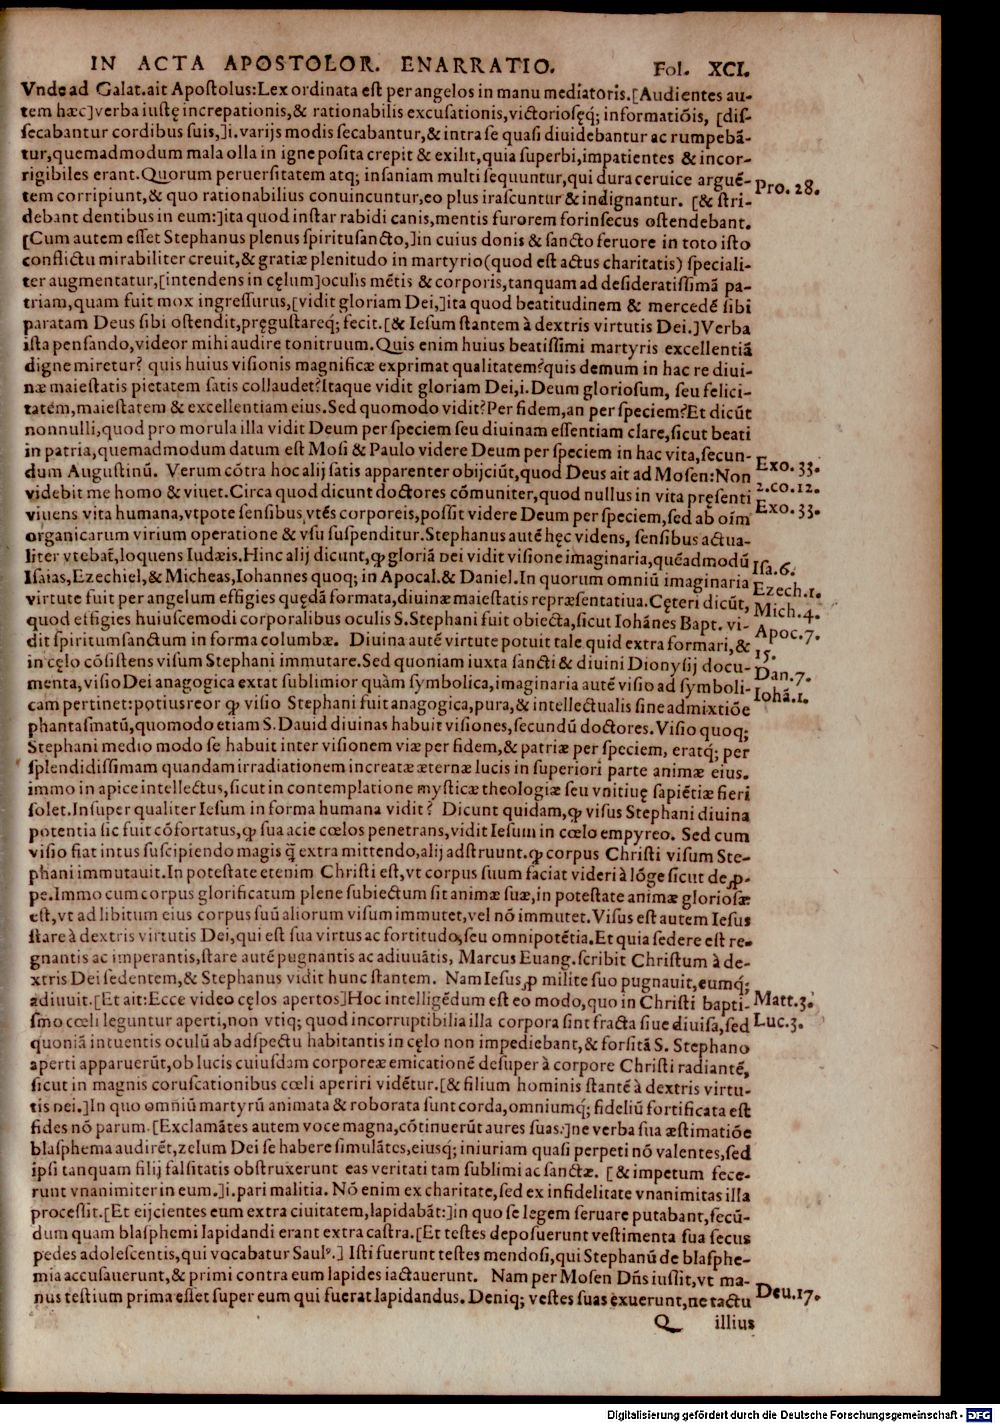 IN ACTA APOSTOLOR. ENARRATIO. Fol. XCI.
Vnde ad Galat.ait Apostolus:Lex ordinata est per angelos in manu mediatoris.[Audientes au-
tem hæc]verba iustę increpationis,& rationabilis excusationis,victoriosęq́; informatiõis, [dis-
secabantur cordibus suis,]i.varijs modis secabantur,& intra se quasi diuidebantur ac rumpebã-
tur,quemadmodum mala olla in igne posita crepit & exilit,quia superbi,impatientes & incor-
rigibiles erant.Quorum peruersitatem atq; insaniam multi sequuntur,qui dura ceruice arguẽ-
tem corripiunt,& quo rationabilius conuincuntur,eo plus irascuntur & indignantur. [& stri- Pro.28.
debant dentibus in eum:]ita quod instar rabidi canis,mentis furorem forinsecus ostendebant.
[Cum autem esset Stephanus plenus spiritusancto,]in cuius donis & sancto feruore in toto isto
conflictu mirabiliter creuit,& gratiæ plenitudo in martyrio(quod est actus charitatis) speciali-
ter augmentatur,[intendens in cęlum]oculis mẽtis & corporis,tanquam ad desideratissimã pa-
triam,quam fuit mox ingressurus,[vidit gloriam Dei,]ita quod beatitudinem & mercedẽ sibi
paratam Deus sibi ostendit,pręgustareq́; fecit.[& Iesum stantem à dextris virtutis Dei.]Verba
ista pensando,videor mihi audire tonitruum.Quis enim huius beatissimi martyris excellentiã
digne miretur? quis huius visionis magnificæ exprimat qualitatem?quis demum in hac re diui-
næ maiestatis pietatem satis collaudet?Itaque vidit gloriam Dei,i.Deum gloriosum, seu felici-
tatem,maiestatem & excellentiam eius.Sed quomodo vidit?Per fidem,an per speciem?Et dicũt
nonnulli,quod pro morula illa vidit Deum per speciem seu diuinam essentiam clare,sicut beati
in patria,quemadmodum datum est Mosi & Paulo videre Deum per speciem in hac vita,secun-
dum Augustinũ. Verum cõtra hoc alij satis apparenter obijciũt,quod Deus ait ad Mosen:Non Exo.33.
videbit me homo & viuet.Circa quod dicunt doctores cõmuniter,quod nullus in vita pręsenti 2.co.12.
viuens vita humana,vtpote sensibus vtẽs corporeis,possit videre Deum per speciem,sed ab oĩm Exo.33.
organicarum virium operatione & vsu suspenditur.Stephanus autẽ hęc videns, sensibus actua-
liter vtebať,loquens Iudæis.Hinc alij dicunt,ꝙ gloriã Dei vidit visione imaginaria,quẽadmodũ Isa.6.
Isaias,Ezechiel,& Micheas,Iohannes quoq; in Apocal.& Daniel.In quorum omniũ imaginaria Ezech.1.
virtute fuit per angelum effigies quędã formata,diuinæ maiestatis repræsentatiua.Cęteri dicũt, Mich.4.
quod effigies huiuscemodi corporalibus oculis S.Stephani fuit obiecta,sicut Iohãnes Bapt. vi- Apoc.7.
dit spiritumsanctum in forma columbæ. Diuina autẽ virtute potuit tale quid extra formari,& 15.
in cęlo cõsistens visum Stephani immutare.Sed quoniam iuxta sancti & diuini Dionysij docu- Dan.7.
menta,visio Dei anagogica extat sublimior quàm symbolica,imaginaria autẽ visio ad symboli- Iohã.1.
cam pertinet:potius reor ꝙ visio Stephani fuit anagogica,pura,& intellectualis sine admixtiõe
phantasmatũ,quomodo etiam S.Dauid diuinas habuit visiones,secundũ doctores.Visio quoq;
Stephani medio modo se habuit inter visionem viæ per fidem,& patriæ per speciem, eratq́; per
splendidissimam quandam irradiationem increatæ æternæ lucis in superiori parte animæ eius.
immo in apice intellectus,sicut in contemplatione mysticæ theologiæ seu vnitiuę sapiẽtiæ fieri
solet.Insuper qualiter Iesum in forma humana vidit? Dicunt quidam,ꝙ visus Stephani diuina
potentia sic fuit cõfortatus,ꝙ sua acie cœlos penetrans,vidit Iesum in cœlo empyreo. Sed cum
visio fiat intus suscipiendo magis q̃ extra mittendo,alij adstruunt.ꝙ corpus Christi visum Ste-
phani immutauit.In potestate etenim Christi est,vt corpus suum faciat videri à lõge sicut de ꝓ-
pe.Immo cum corpus glorificatum plene subiectum sit animæ suæ,in potestate animæ gloriosæ
est,vt ad libitum eius corpus suũ aliorum visum immutet,vel nõ immutet.Visus est autem Iesus
stare à dextris virtutis Dei,qui est sua virtus ac fortitudo,seu omnipotẽtia.Et quia sedere est re-
gnantis ac imperantis,stare autẽ pugnantis ac adiuuãtis, Marcus Euang.scribit Christum à de-
xtris Dei sedentem,& Stephanus vidit hunc stantem. Nam Iesus ꝓ milite suo pugnauit,eumq́;
adiuuit.[Et ait:Ecce video cęlos apertos]Hoc intelligẽdum est eo modo,quo in Christi bapti- Matt.3.
smo cœli leguntur aperti,non vtiq; quod incorruptibilia illa corpora sint fracta siue diuisa,sed Luc.3.
quoniã intuentis oculũ ab adspectu habitantis in cęlo non impediebant,& forsitã S. Stephano
aperti apparuerũt,ob lucis cuiusdam corporeæ emicationẽ desuper à corpore Christi radiantẽ,
sicut in magnis coruscationibus cœli aperiri vidẽtur.[& filium hominis stantẽ à dextris virtu-
tis Dei.]In quo omniũ martyrũ animata & roborata sunt corda,omniumq́; fideliũ fortificata est
fides nõ parum.[Exclamãtes autem voce magna,cõtinuerũt aures suas:]ne verba sua æstimatiõe
blasphema audirẽt,zelum Dei se habere simulãtes,eiusq́; iniuriam quasi perpeti nõ valentes,sed
ipsi tanquam filij falsitatis obstruxerunt eas veritati tam sublimi ac sanctæ. [& impetum fece-
runt vnanimiter in eum.]i.pari malitia. Nõ enim ex charitate,sed ex infidelitate vnanimitas illa
processit.[Et eijcientes eum extra ciuitatem,lapidabãt:]in quo se legem seruare putabant,secũ-
dum quam blasphemi lapidandi erant extra castra.[Et testes deposuerunt vestimenta sua secus
pedes adolescentis,qui vocabatur Saulꝰ.] Isti fuerunt testes mendosi,qui Stephanũ de blasphe-
mia accusauerunt,& primi contra eum lapides iactauerunt. Nam per Mosen Dñs iussit,vt ma-
nus testium prima esset super eum qui fuerat lapidandus. Deniq; vestes suas exuerunt,ne tactu Deu.17.
Q illius
Digitalisierung gefördert durch die Deutsche Forschungsgemeinschaft - DFG